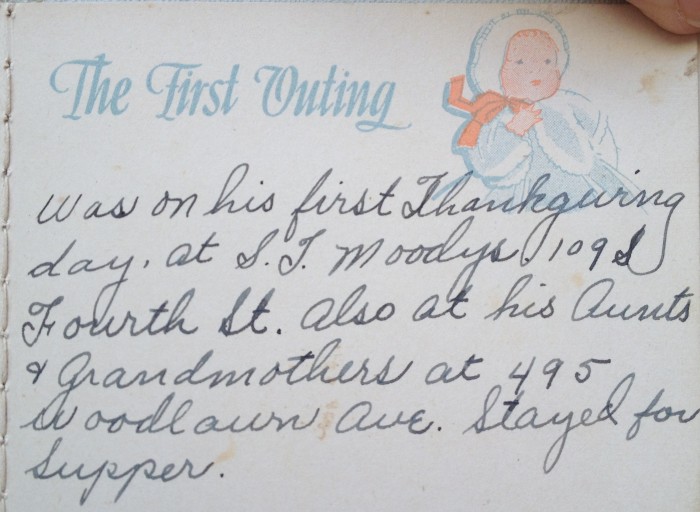 The First Outing
was on his first Thankgiving
day. at S. T. Moodys. 109 S
Fourth St. also at his Aunts
& Grandmothers at 495
Woodlawn Ave. Stayed for
Supper.